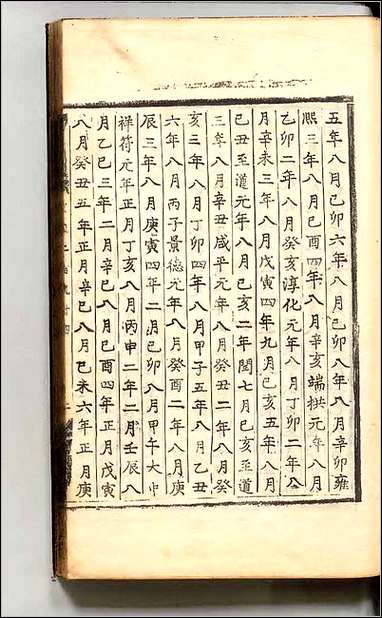 五年八月己卯六年八月辛卯雍
熙三年八月己酉四年八月辛亥端拱元年八月
乙卯二年八月癸亥淳化元年八月丁卯二年八
月辛未三年八月戊寅四年九月己亥五年八月
己丑至道元年八月己亥二年閏七月己亥至道
三年八月辛丑咸平元年八月癸丑二年八月癸
亥三年八月丁卯四年八月甲子五年八月乙丑
六年八月丙子景德元年八月癸酉二年八月庚
辰三年八月庚寅四年二月己卯八月甲午大中
祥符元年正月丁亥八月丙申二年二月壬辰八
月乙巳三年二月辛巳八月己酉四年正月戊寅
八月癸丑五年正月辛巳八月己未六年正月庚